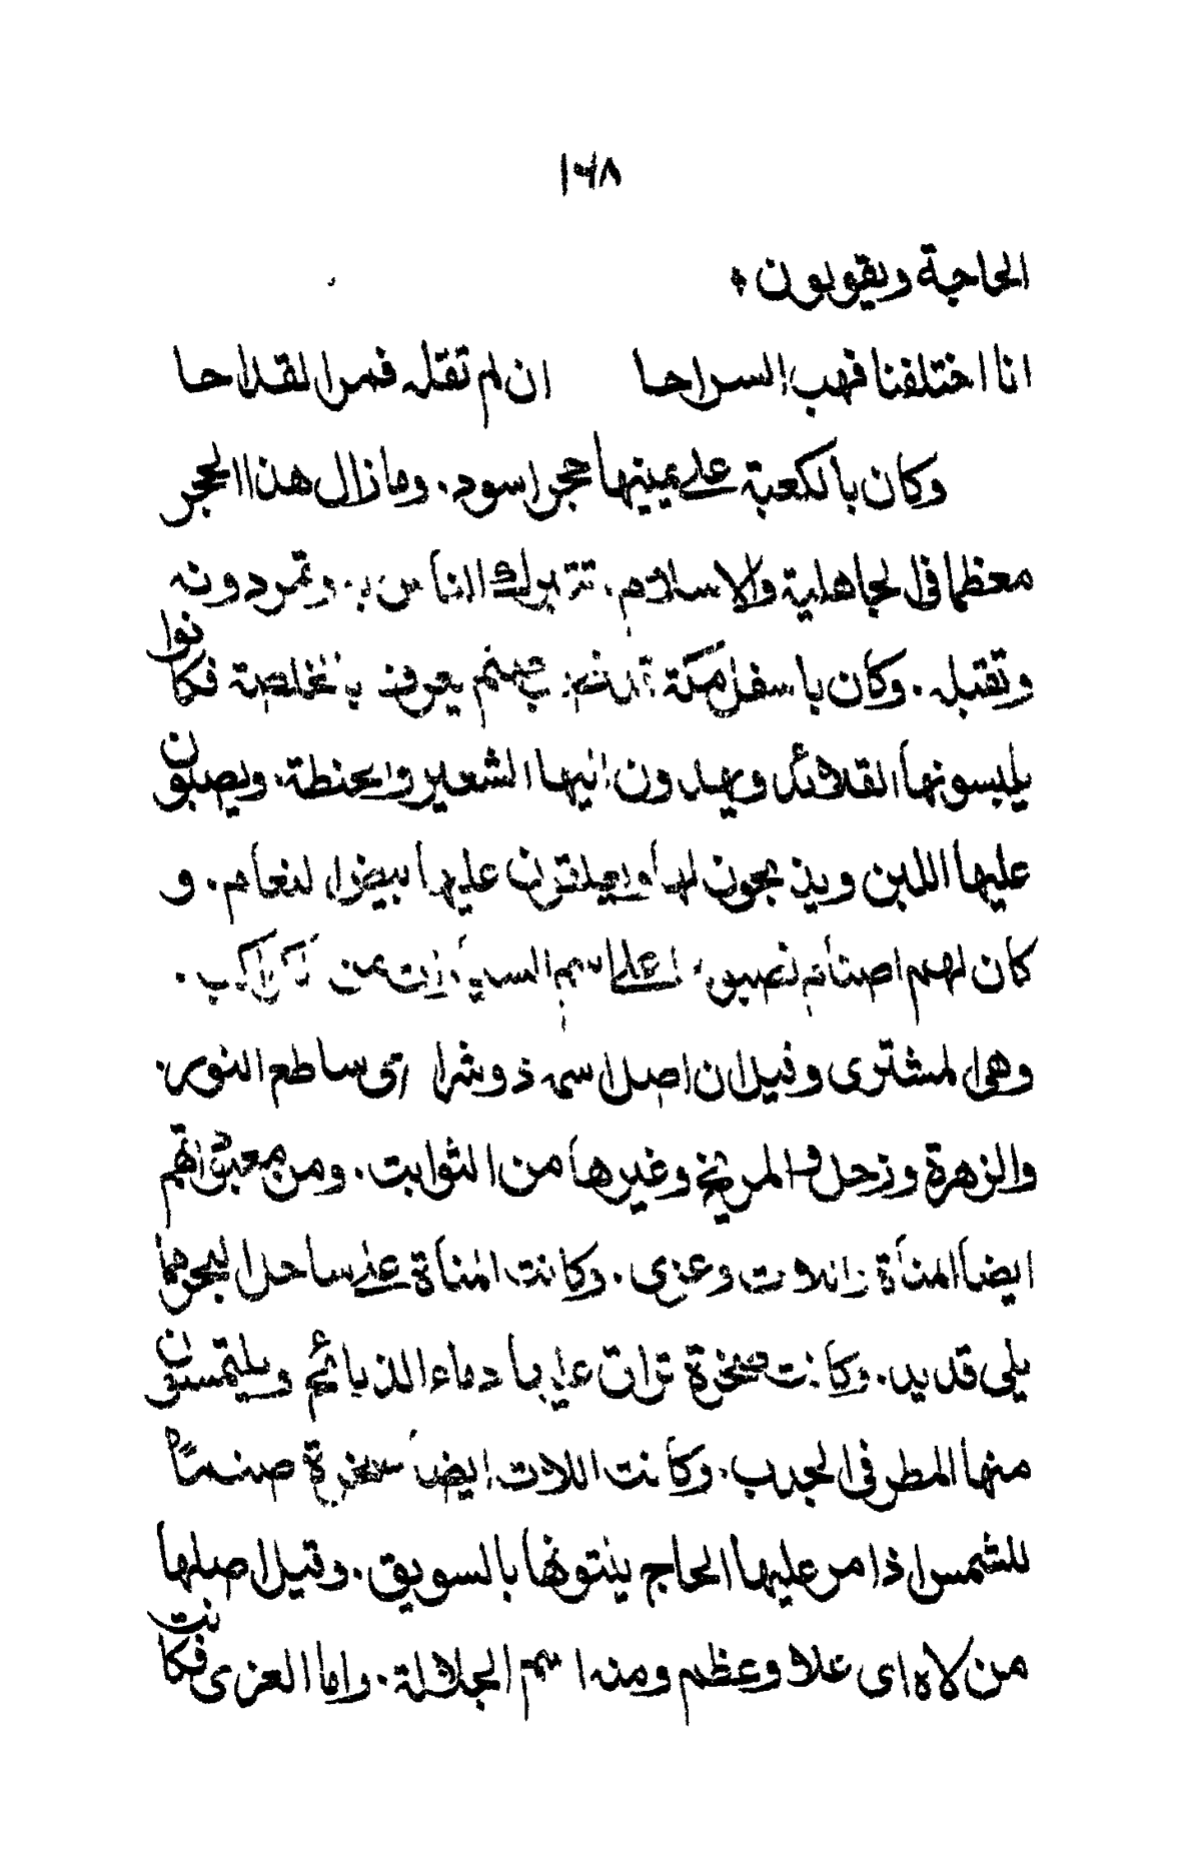 ١٦٨
الحاجة ويقولون
انا اختلفنا فهب السراحا ان لم تقله فمر القداحا
وكان بالكعبة على يمينها حجر اسود. وما زال هذا الحجر
معظما فى الجاهلية والاسلام. تتبرك الناس به. وتمردونه
وتقتبله. وكان باسفل مكة صنم يعرف بالخلصة فكانوا
يلبسونها القلائد ويهدون اليها الشعير والحنطة. ويصبون
عليها اللبن ويذبحون لها ويعلقون عليها بيض النعام. و
كان لهم اصنام نصبوها على اسم السيارات من الكواكب.
وهى المشترى وقيل ان اصل اسمه ذو شرا اى ساطع النور.
والزهرة وزحل والمريخ وغيرها من الثوابت. ومن معبوداتهم
ايضا المناة واللات وعزى. وكانت المناة على ساحل البحر مما
يلى قديد. وكانت صخرة تراق عليها دماء الذبائح ويلتمسون
منها المطر فى الجدب. وكانت اللات ايضا صخرة صنما
للشمس اذا مر عليها الحاج يلتونها بالسويق. وقيل اصلها
من لاه اى علا وعظم ومنه اسم الجلالة. واما العزى فكانت